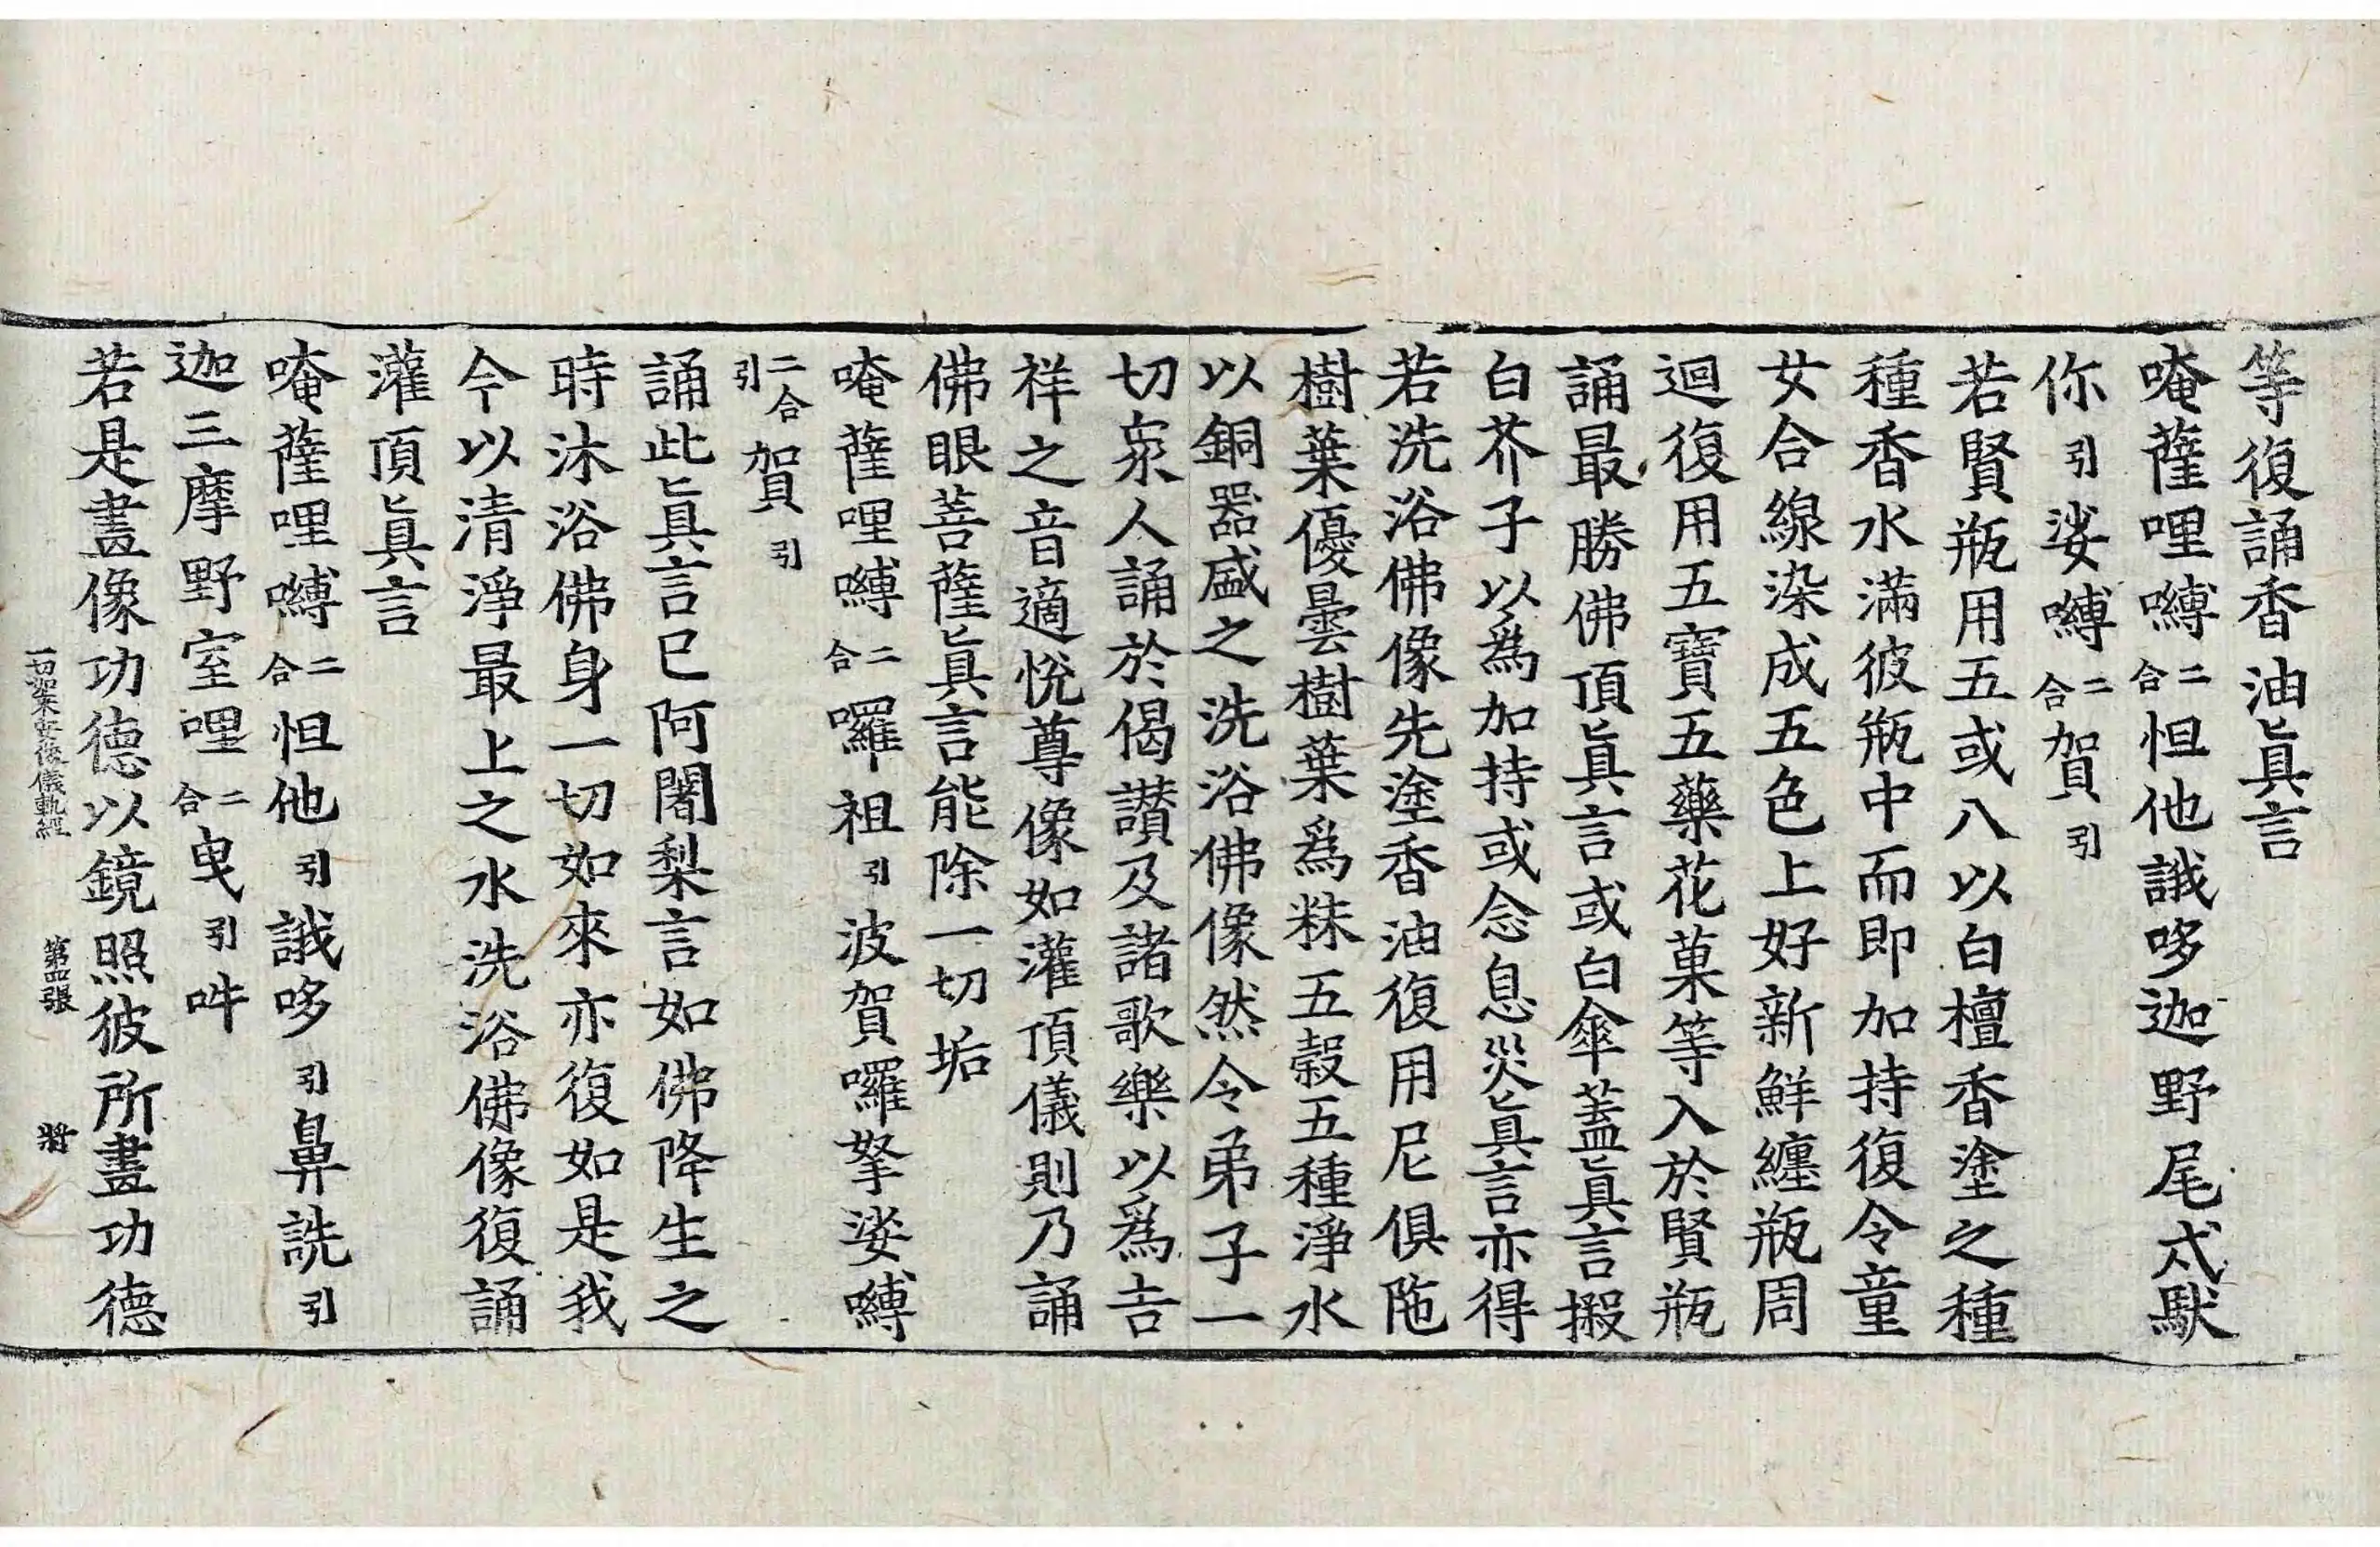 等復誦香油眞言
唵薩哩嚩二合怛他誐哆迦野尾式馱
你引娑嚩二合賀引
若賢瓶用五或八以白檀香塗之種
種香水滿彼瓶中而即加持復令童
女合線染成五色上好新鮮纏瓶周
迴復用五寶五藥花菓等入於賢瓶
誦最勝佛頂眞言或白傘蓋眞言擲
白芥子以爲加持或念息災眞言亦得
若洗浴佛像先塗香油復用尼俱陁
樹葉優曇樹葉爲粖五穀五種淨水
以銅器盛之洗浴佛像然令弟子一
切衆人誦於偈讃及諸歌樂以爲吉
祥之音適悅尊像如灌頂儀則乃誦
佛眼菩薩眞言能除一切垢
唵薩哩嚩二合囉祖引波賀囉拏娑嚩
二合引賀引
誦此眞言已阿闍梨言如佛降生之
時沐浴佛身一切如來亦復如是我
今以清淨最上之水洗浴佛像復誦
灌頂眞言
唵薩哩嚩二合怛他引誐哆引鼻詵引
迦三摩野室哩二合曳引吽
若是畫像功德以鏡照彼所畫功德
一切如來安像儀軌經 第四張 將